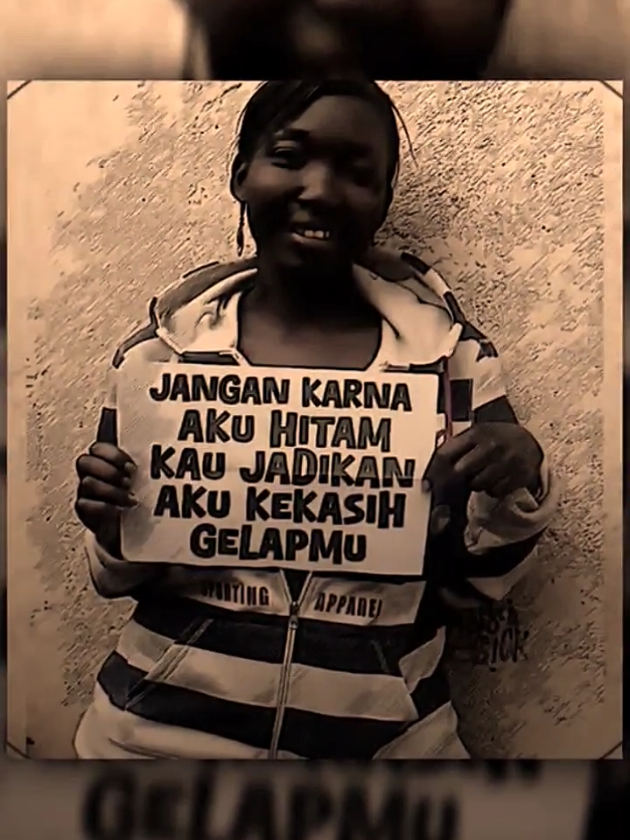 JANGAN KARNA
AKU HITAM
KAU JADIKAN
AKU KEKASIH
GELAPMU
SPORTING APPAREL
GELAPMU